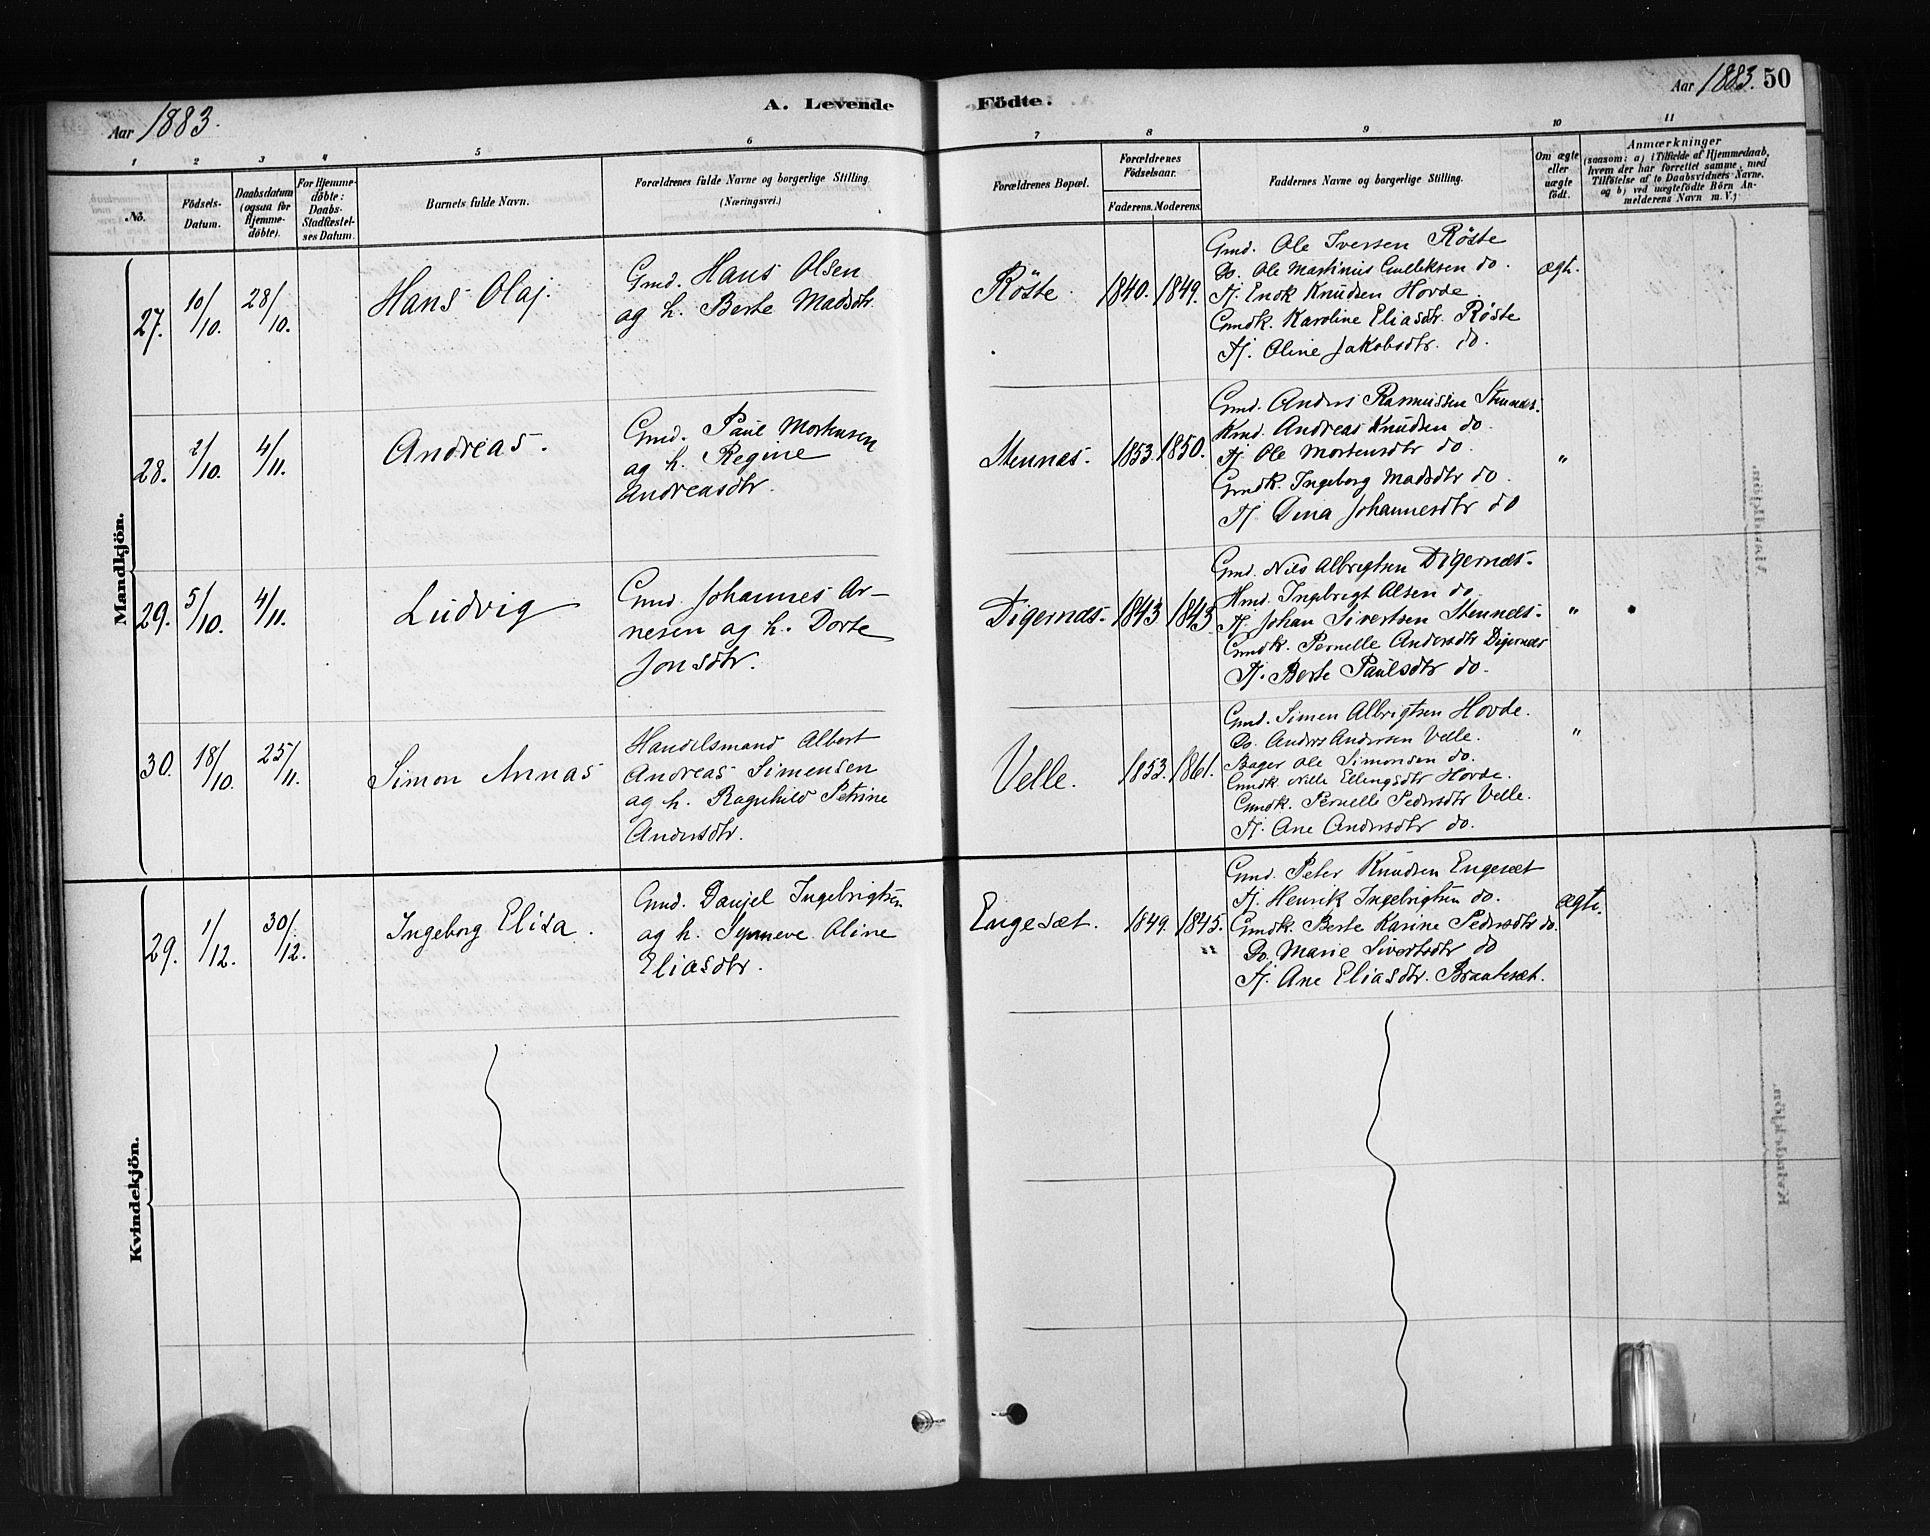 Aar 1883.
A. Levende Födte.
Aar 1883. 50
1 2 3 4 5 6 7 8 9 10 11
No.
Födsels-Datum.
Daabsdatum (ogsaa for Hjemmedöbte).
For Hjemmedöbte: Daabs-Stadfæstelses Datum.
Barnets fulde Navn.
Forældrenes fulde Navne og borgerlige Stilling. (Næringsvei.)
Forældrenes Bopæl.
Forældrenes Födselsaar.
Faderens. Moderens.
Faddernes Navne og borgerlige Stilling.
Om ægte eller uægte födt.
Anmærkninger
(saasom: a) i Tilfælde af Hjemmedaab, hvem der har forrettet samme, med Tilföielse af to Daabsvidners Navne, og b) ved uægtefödte Börn Anmelderens Navn m. V.)
Mandkjön.
27. 10/10. 28/10. Hans Olaj.
Gmd. Hans Olsen
og h. Berte Madsdtr.
Röste. 1840. 1849.
Gmd. Ole Iversen Röste
Do. Ole Martinus Gulliksen do.
Tj. Enok Knudsen Hovde.
Gmdk. Karoline Eliasdtr. Röste
Tj. Oline Jakobsdtr. do.
ægt.
28. 2/10. 4/11. Andreas.
Gmd. Paul Mortensen
og h. Regine
Andreasdtr.
Stennes. 1853. 1850.
Gmd. Anders Rasmussen Stennes.
Kmd. Andreas Knudsen do.
Tj. Ole Mortensdtr do.
Gmdk. Ingeborg Madsdtr do.
Tj. Dina Johannesdtr do
"
29. 5/10. 4/11. Ludvig
Gmd. Johannes Ar-
nesen og h. Dorte
Jonsdtr.
Digernæs. 1843 1843
Gmd. Nils Albrigtsen Digernæs.
Hmd. Ingebrigt Olsen do
Tj. Johan Sivertsen Stennes.
Gmdk. Pernelle Andersdtr Digernæs
Tj. Berte Paulsdtr do.
"
30. 18/10. 25/11. Simon Annas
Handelsmand Albert
Andreas Simensen
og h. Ragnhild Petrine
Andersdtr.
Velle. 1853. 1861.
Gmd. Simen Albrigtsen Hovde.
Do. Anders Andersen Velle.
Bager Ole Simonsen do.
Gmdk. Nille Ellingsdtr Hovde.
Gmdk. Pernelle Pedersdtr Velle.
Tj. Ane Andersdtr do.
"
Kvindekjön.
29. 1/12. 30/12. Ingeborg Elisa.
Gmd. Danjel Ingebrigtsen
og h. Synneve Oline
Eliasdtr.
Engeset. 1849. 1845.
"
Gmd. Peter Knudsen Engeset
Tj. Henrik Ingebrigtsen do.
Gmdk. Berte Karine Pedersdtr do.
Do. Marie Sivertsdtr do
Tj. Ane Eliasdtr. Brauteset.
ægte.
Mandkjön.
Kvindekjön.